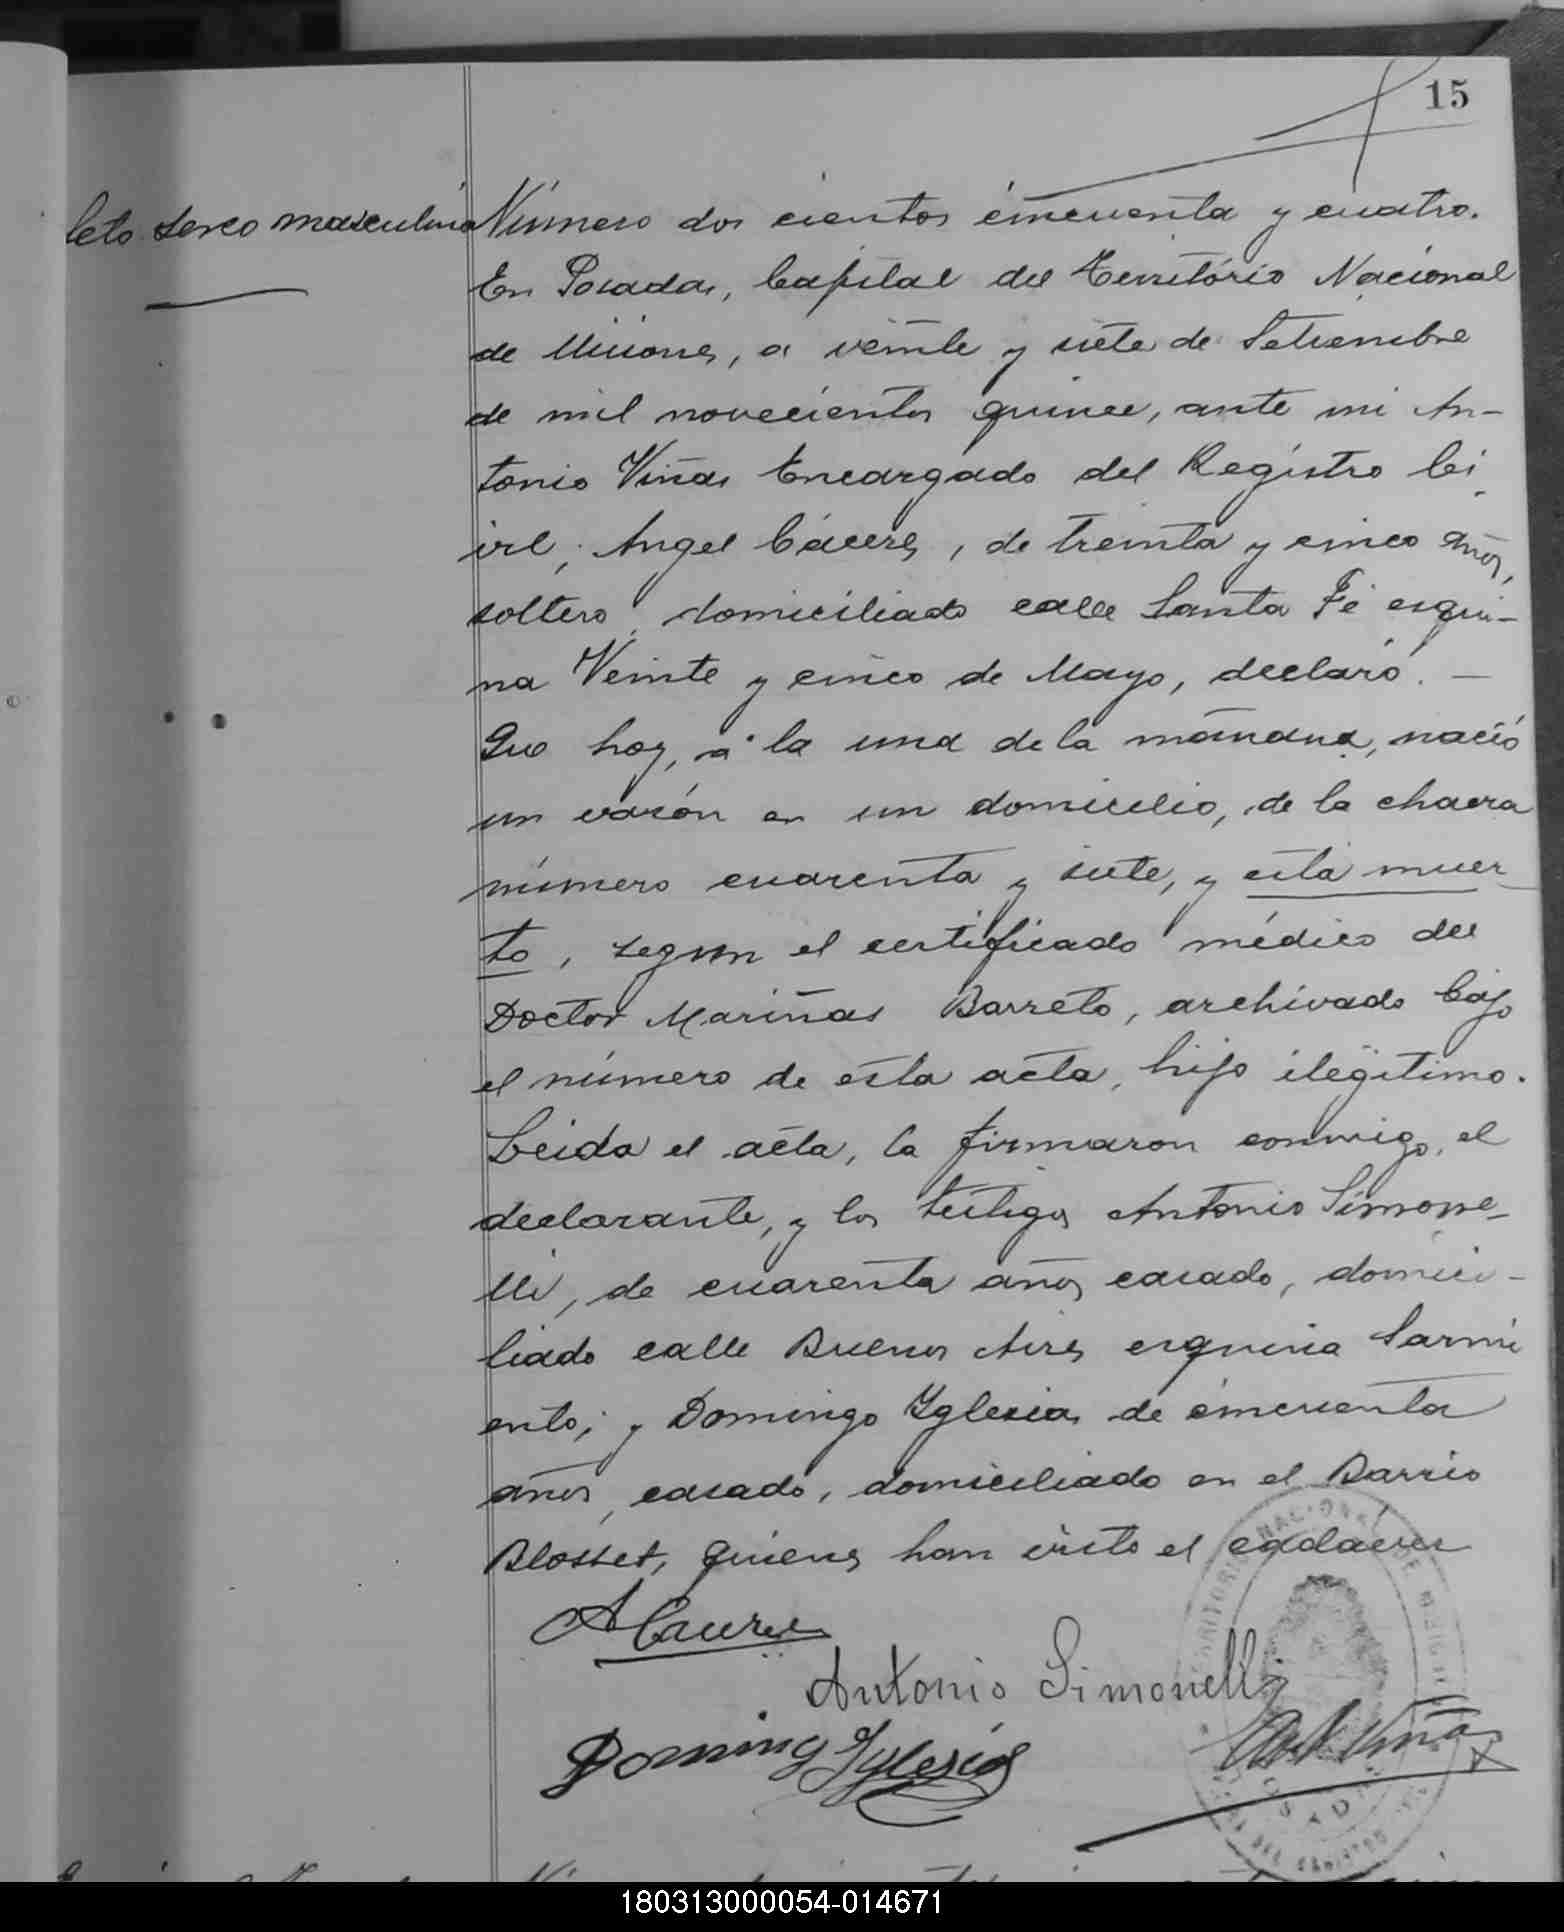 15
leto sexo masculino
Número dos cientos cincuenta y cuatro.
En Posadas, Capital del Territorio Nacional
de Misiones, a veinte y siete de Setiembre
de mil novecientos quince, ante mi An-
tonio Viñas Encargado del Registro Ci
vil, Angel Cáceres, de treinta y cinco años,
soltero, domiciliado calle Santa Fé esqui-
na Veinte y cinco de Mayo, declaró. —
Que hoy, a la una de la mañana, nació
un varón en un domicilio, de la chacra
número cuarenta y siete, y está muer
to, segun el certificado médico del
Doctor Mariñas Barreto, archivado bajo
el número de esta acta, hijo ilegitimo.
Leida el acta, la firmaron conmigo, el
declarante, y los testigos Antonio Simone-
lli, de cuarenta años casado, domici-
liado calle Buenos Aires esquina Sarmi
ento; y Domingo Yglesias de cincuenta
años, casado, domiciliado en el Barrio
Blosset, quienes han visto el cadáver
A Caceres
Antonio Simonelli
Domingo Yglesias
Ant Viñas
180313000054-014671